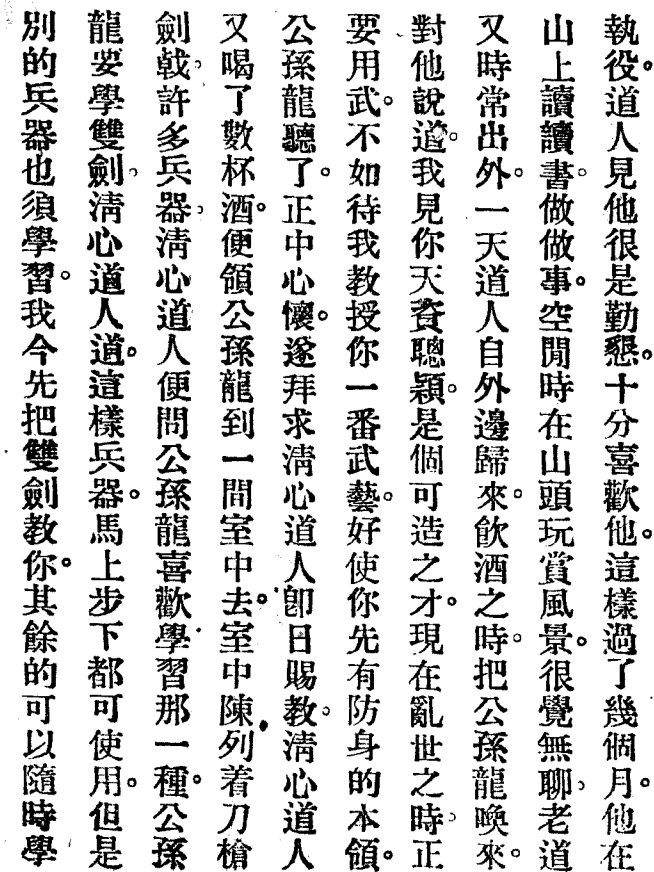 執役。道人見他很是勤懇。十分喜歡他。這樣過了幾個月。他在
山上讀讀書。做做事。空閒時在山頭玩賞風景。很覺無聊。老道
又時常出外。一天道人自外邊歸來。飲酒之時。把公孫龍喚來。
對他說道。我見你天資聰穎。是個可造之才。現在亂世之時。正
要用武。不如待我教授你一番武藝。好使你先有防身的本領。
公孫龍聽了。正中心懷。遂拜求淸心道人卽日賜教。淸心道人
又喝了數杯酒。便領公孫龍到一間室中去。室中陳列着刀槍
劍戟。許多兵器。淸心道人便問公孫龍喜歡學習那一種。公孫
龍要學雙劍。淸心道人道。這樣兵器。馬上步下都可使用。但是
別的兵器也須學習。我今先把雙劍教你。其餘的可以隨時學